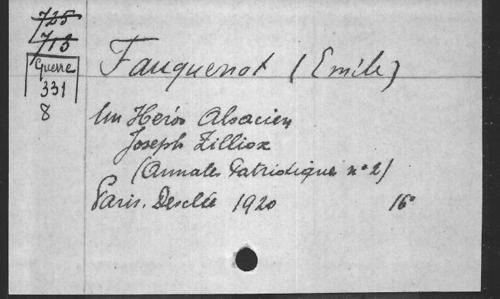 725
713
Guerre
331
8
Fauquenot (Emile)
Un Héros Alsacien
Joseph Zilliox
(Annales Patriotiques n° 2)
Paris. Desclée 1920 16°